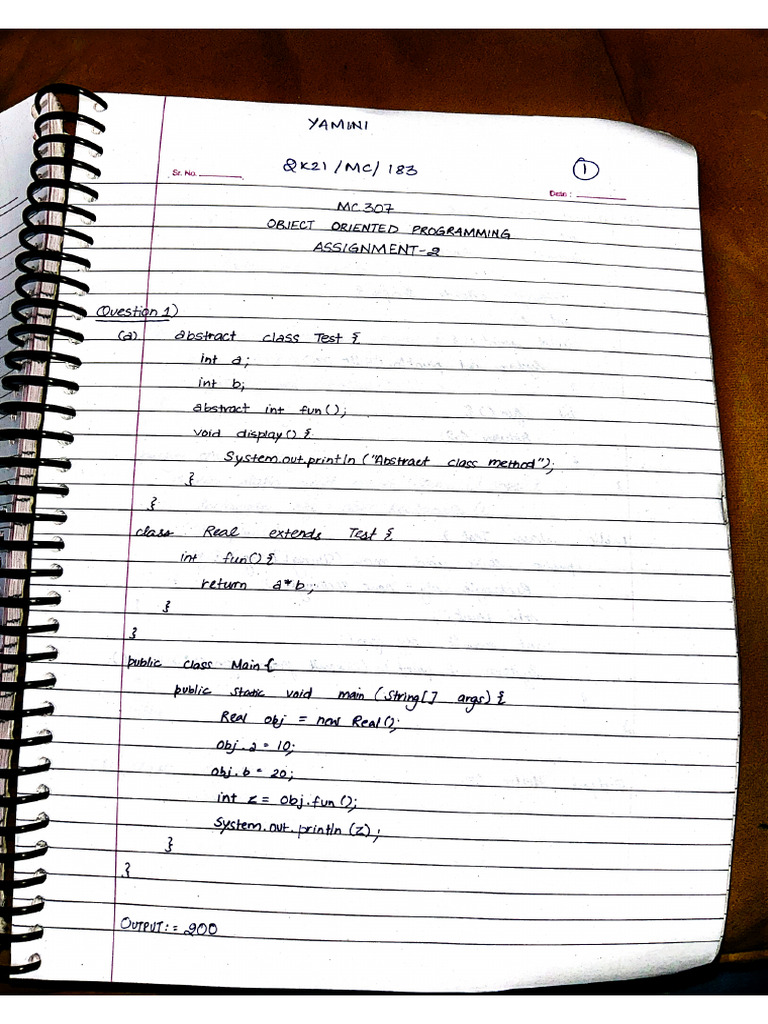 YAMINI
Sr. No.
2K21/MC/183
1
Date :
MC307
OBJECT ORIENTED PROGRAMMING
ASSIGNMENT-2
Question 1)
(a) abstract class Test {
int a;
int b;
abstract int fun();
void display() {
System.out.println ("Abstract class method");
}
}
class Real extends Test {
int fun() {
return a*b;
}
}
public class Main {
public static void main (String[] args) {
Real obj = new Real();
obj.a = 10;
obj.b = 20;
int z = obj.fun();
System.out.println(z);
}
}
OUTPUT: = 200